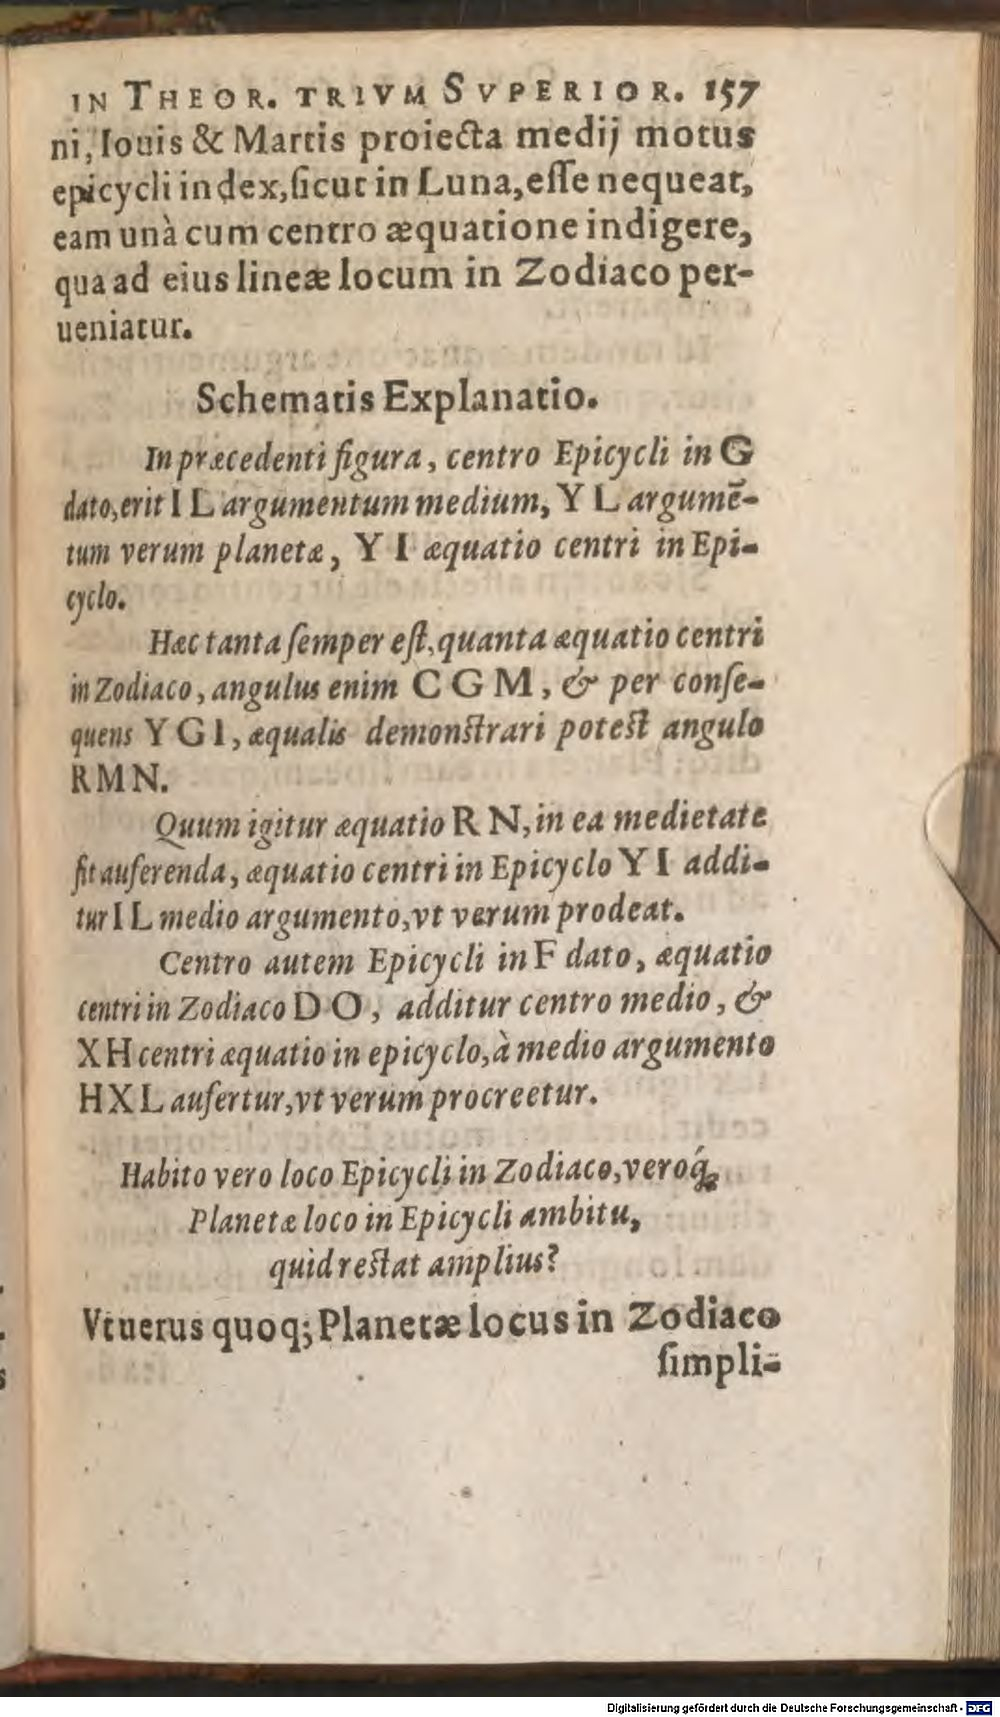 IN THEOR. TRIVM SVPERIOR. 157
ni, Iouis & Martis proiecta medij motus
epicycli index, ſicut in Luna, eſſe nequeat,
eam unà cum centro æquatione indigere,
qua ad eius lineæ locum in Zodiaco per-
ueniatur.
Schematis Explanatio.
In præcedenti figura, centro Epicycli in G
dato, erit I L argumentum medium, Y L argumẽ-
tum verum planetæ, Y I æquatio centri in Epi-
cyclo.
Hæc tanta ſemper eſt, quanta æquatio centri
in Zodiaco, angulus enim C G M, & per conſe-
quens Y G I, æqualis demonſtrari poteſt angulo
R M N.
Quum igitur æquatio R N, in ea medietate
ſit auferenda, æquatio centri in Epicyclo Y I addi-
tur I L medio argumento, vt verum prodeat.
Centro autem Epicycli in F dato, æquatio
centri in Zodiaco D O, additur centro medio, &
X H centri æquatio in epicyclo, à medio argumento
H X L aufertur, vt verum procreetur.
Habito vero loco Epicycli in Zodiaco, veroq́;
Planetæ loco in Epicycli ambitu,
quid reſtat amplius?
Vt uerus quoq; Planetæ locus in Zodiaco
ſimpli-
Digitalisierung gefördert durch die Deutsche Forschungsgemeinschaft - DFG